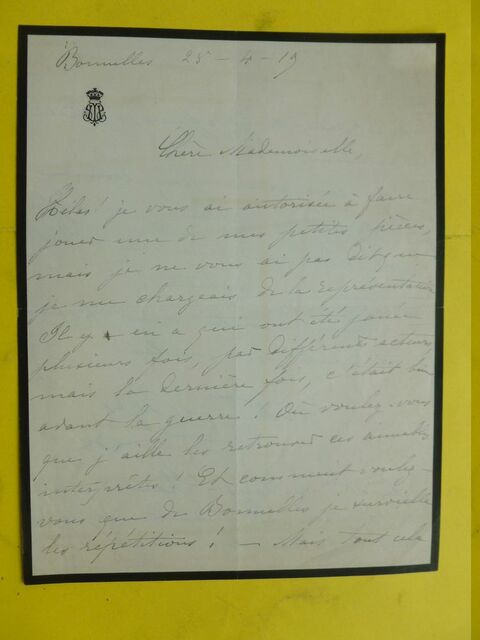 Bonnelles 25-4-19
Chère Mademoiselle,
Hélas! je vous ai autorisée à faire
jouer une de mes petites pièces,
mais je ne vous ai pas dit que
je me chargeais de la représentation
Il y en a qui ont été jouées
plusieurs fois, par différents acteurs
mais la dernière fois, c'était bien
avant la guerre! Où voulez-vous
que j'aille les retrouver ces aimables
interprètes! Et comment voulez-
vous que de Bonnelles je surveille
les répétitions! — Mais tout cela